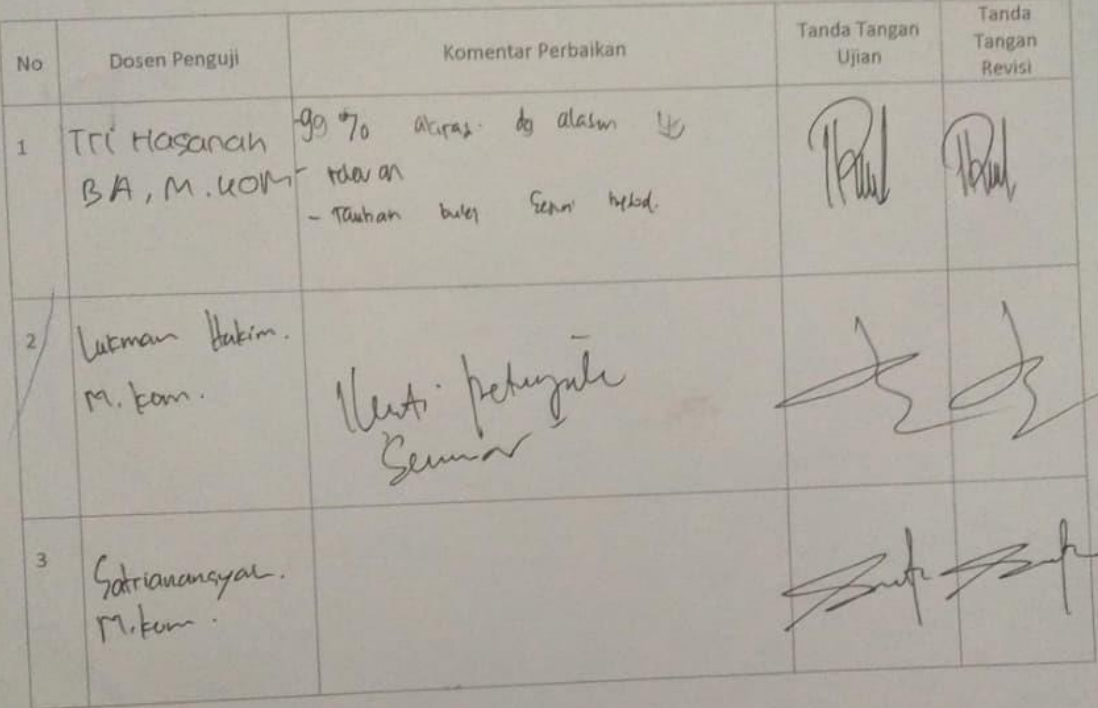 No
Dosen Penguji
Komentar Perbaikan
Tanda Tangan
Ujian
Tanda
Tangan
Revisi
1
Tri Hasanah
BA, M.KOM
-99 % akuras. dg alasan yg
- relevan
- Tambah
2
Lukman Hakim.
M.kom.
Ikuti petunjuk
Seminar
3
Satrianansyah.
M.kom.